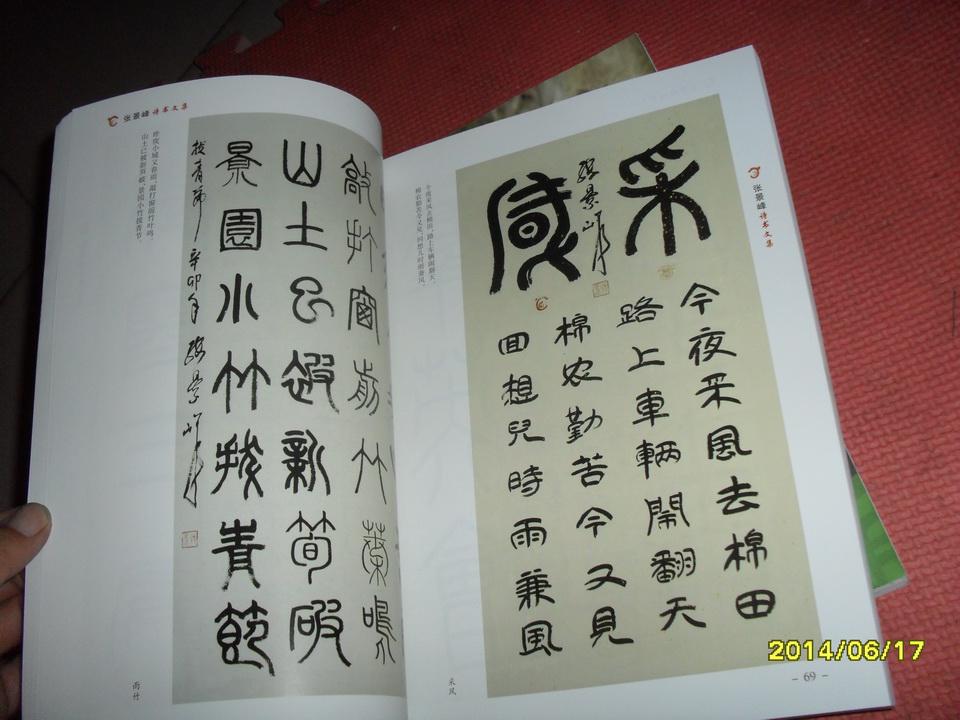 张景峰 诗书文集
昨夜小城又春雨，敲打窗前竹叶鸣。
山土已被新笋破，景园小竹拔青节。
敲打窗前竹葉鳴
山土已被新筍破
景園小竹拔青節
拔青節 辛卯年 张景峰
雨竹
张景峰 诗书文集
采
感
张景峰
今夜采風去棉田
路上車輛鬧翻天
棉农勤苦今又見
回想兒時雨兼風
今夜采风去棉田，路上车辆闹翻天。
棉农勤苦今又见，回想儿时雨兼风。
采风
- 69 -
2014/06/17